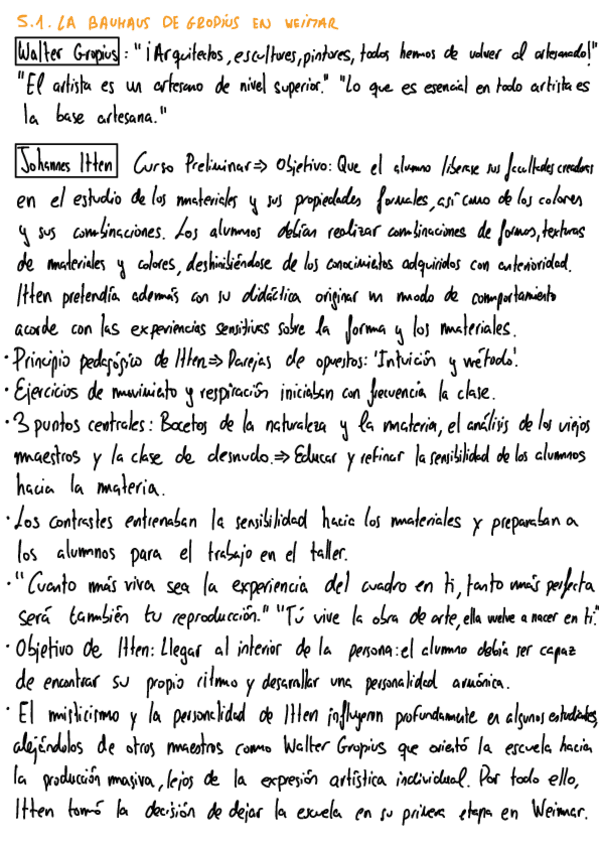 5.1. LA BAUHAUS DE GROPIUS EN WEIMAR
Walter Gropius: "¡Arquitectos, escultores, pintores, todos hemos de volver al artesanado!"
"El artista es un artesano de nivel superior." "Lo que es esencial en todo artista es
la base artesana."
Johannes Itten Curso Preliminar⇒ Objetivo: Que el alumno liberase sus facultades creadoras
en el estudio de los materiales y sus propiedades formales, así como de los colores
y sus combinaciones. Los alumnos debían realizar combinaciones de formas, texturas
de materiales y colores, deshinibiéndose de los conocimientos adquiridos con anterioridad.
Itten pretendía además con su didáctica originar un modo de comportamiento
acorde con las experiencias sensitivas sobre la forma y los materiales.
· Principio pedagógico de Itten⇒ Parejas de opuestos: 'Intuición y método'.
· Ejercicios de movimiento y respiración iniciaban con frecuencia la clase.
· 3 puntos centrales: Bocetos de la naturaleza y la materia, el análisis de los viejos
maestros y la clase de desnudo.⇒ Educar y refinar la sensibilidad de los alumnos
hacia la materia.
· Los contrastes entrenaban la sensibilidad hacia los materiales y preparaban a
los alumnos para el trabajo en el taller.
· "Cuanto más viva sea la experiencia del cuadro en ti, tanto más perfecta
será también tu reproducción." "Tú vive la obra de arte, ella vuelve a nacer en ti."
· Objetivo de Itten: Llegar al interior de la persona: el alumno debía ser capaz
de encontrar su propio ritmo y desarrollar una personalidad armónica.
· El misticismo y la personalidad de Itten influyeron profundamente en algunos estudiantes,
alejándolos de otros maestros como Walter Gropius que orientó la escuela hacia
la producción masiva, lejos de la expresión artística individual. Por todo ello,
Itten tomó la decisión de dejar la escuela en su primera etapa en Weimar.